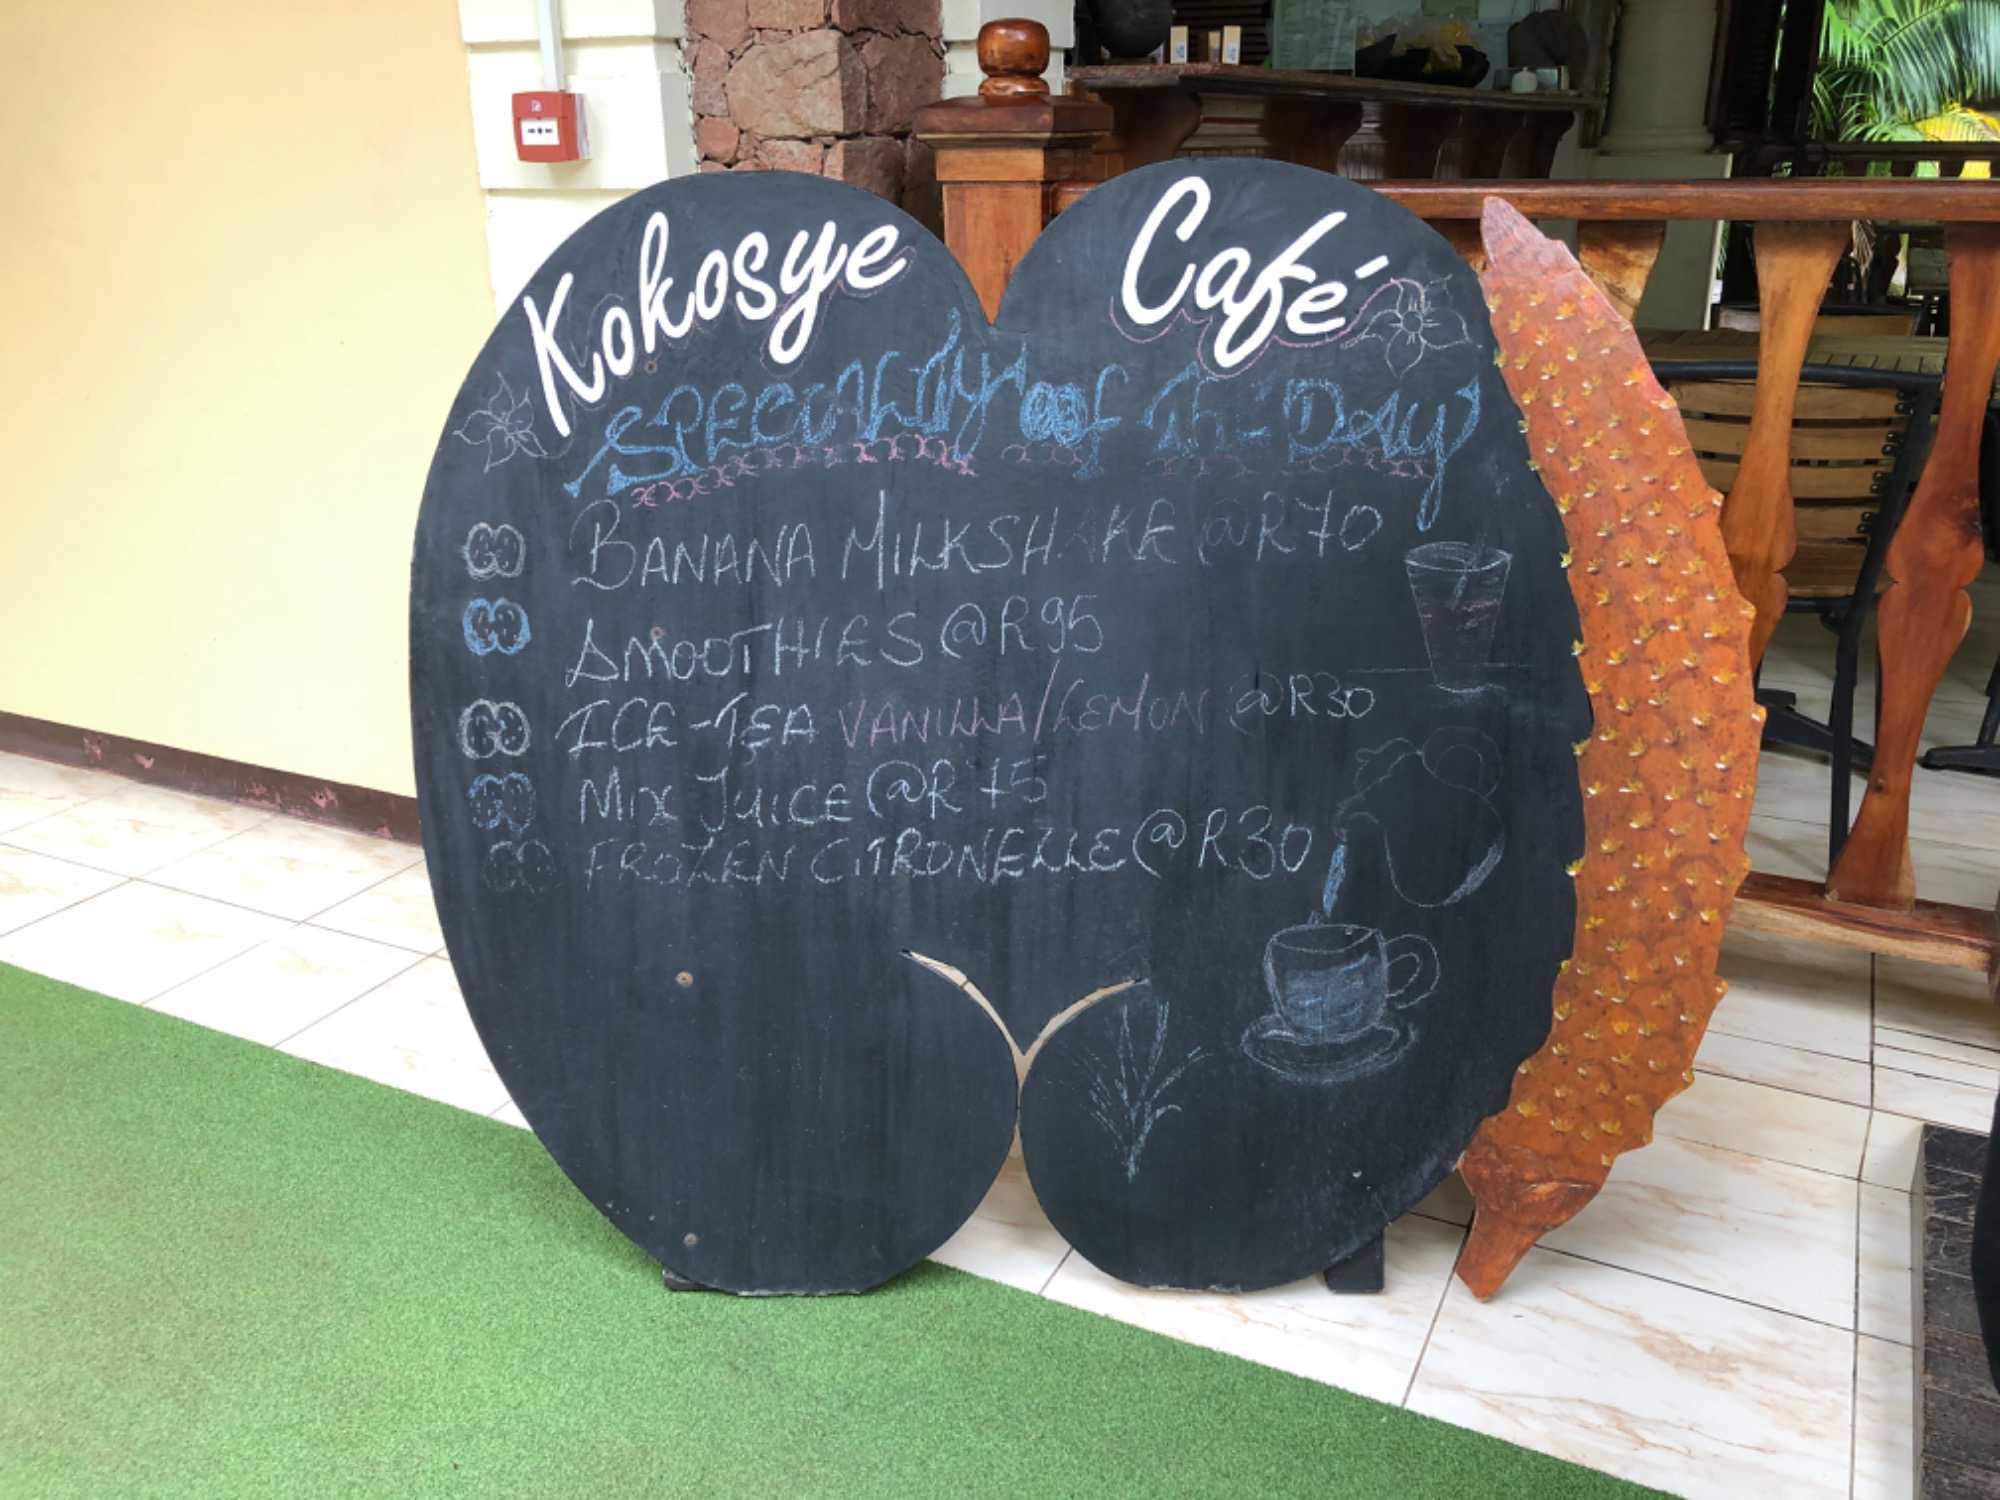 Kokosye Café
SPECIALITY of The DAY
BANANA MILKSHAKE @R70
SMOOTHIES @R95
ICE-TEA VANILLA/LEMON @R30
MIX JUICE @R75
FROZEN CITRONELLE @R30